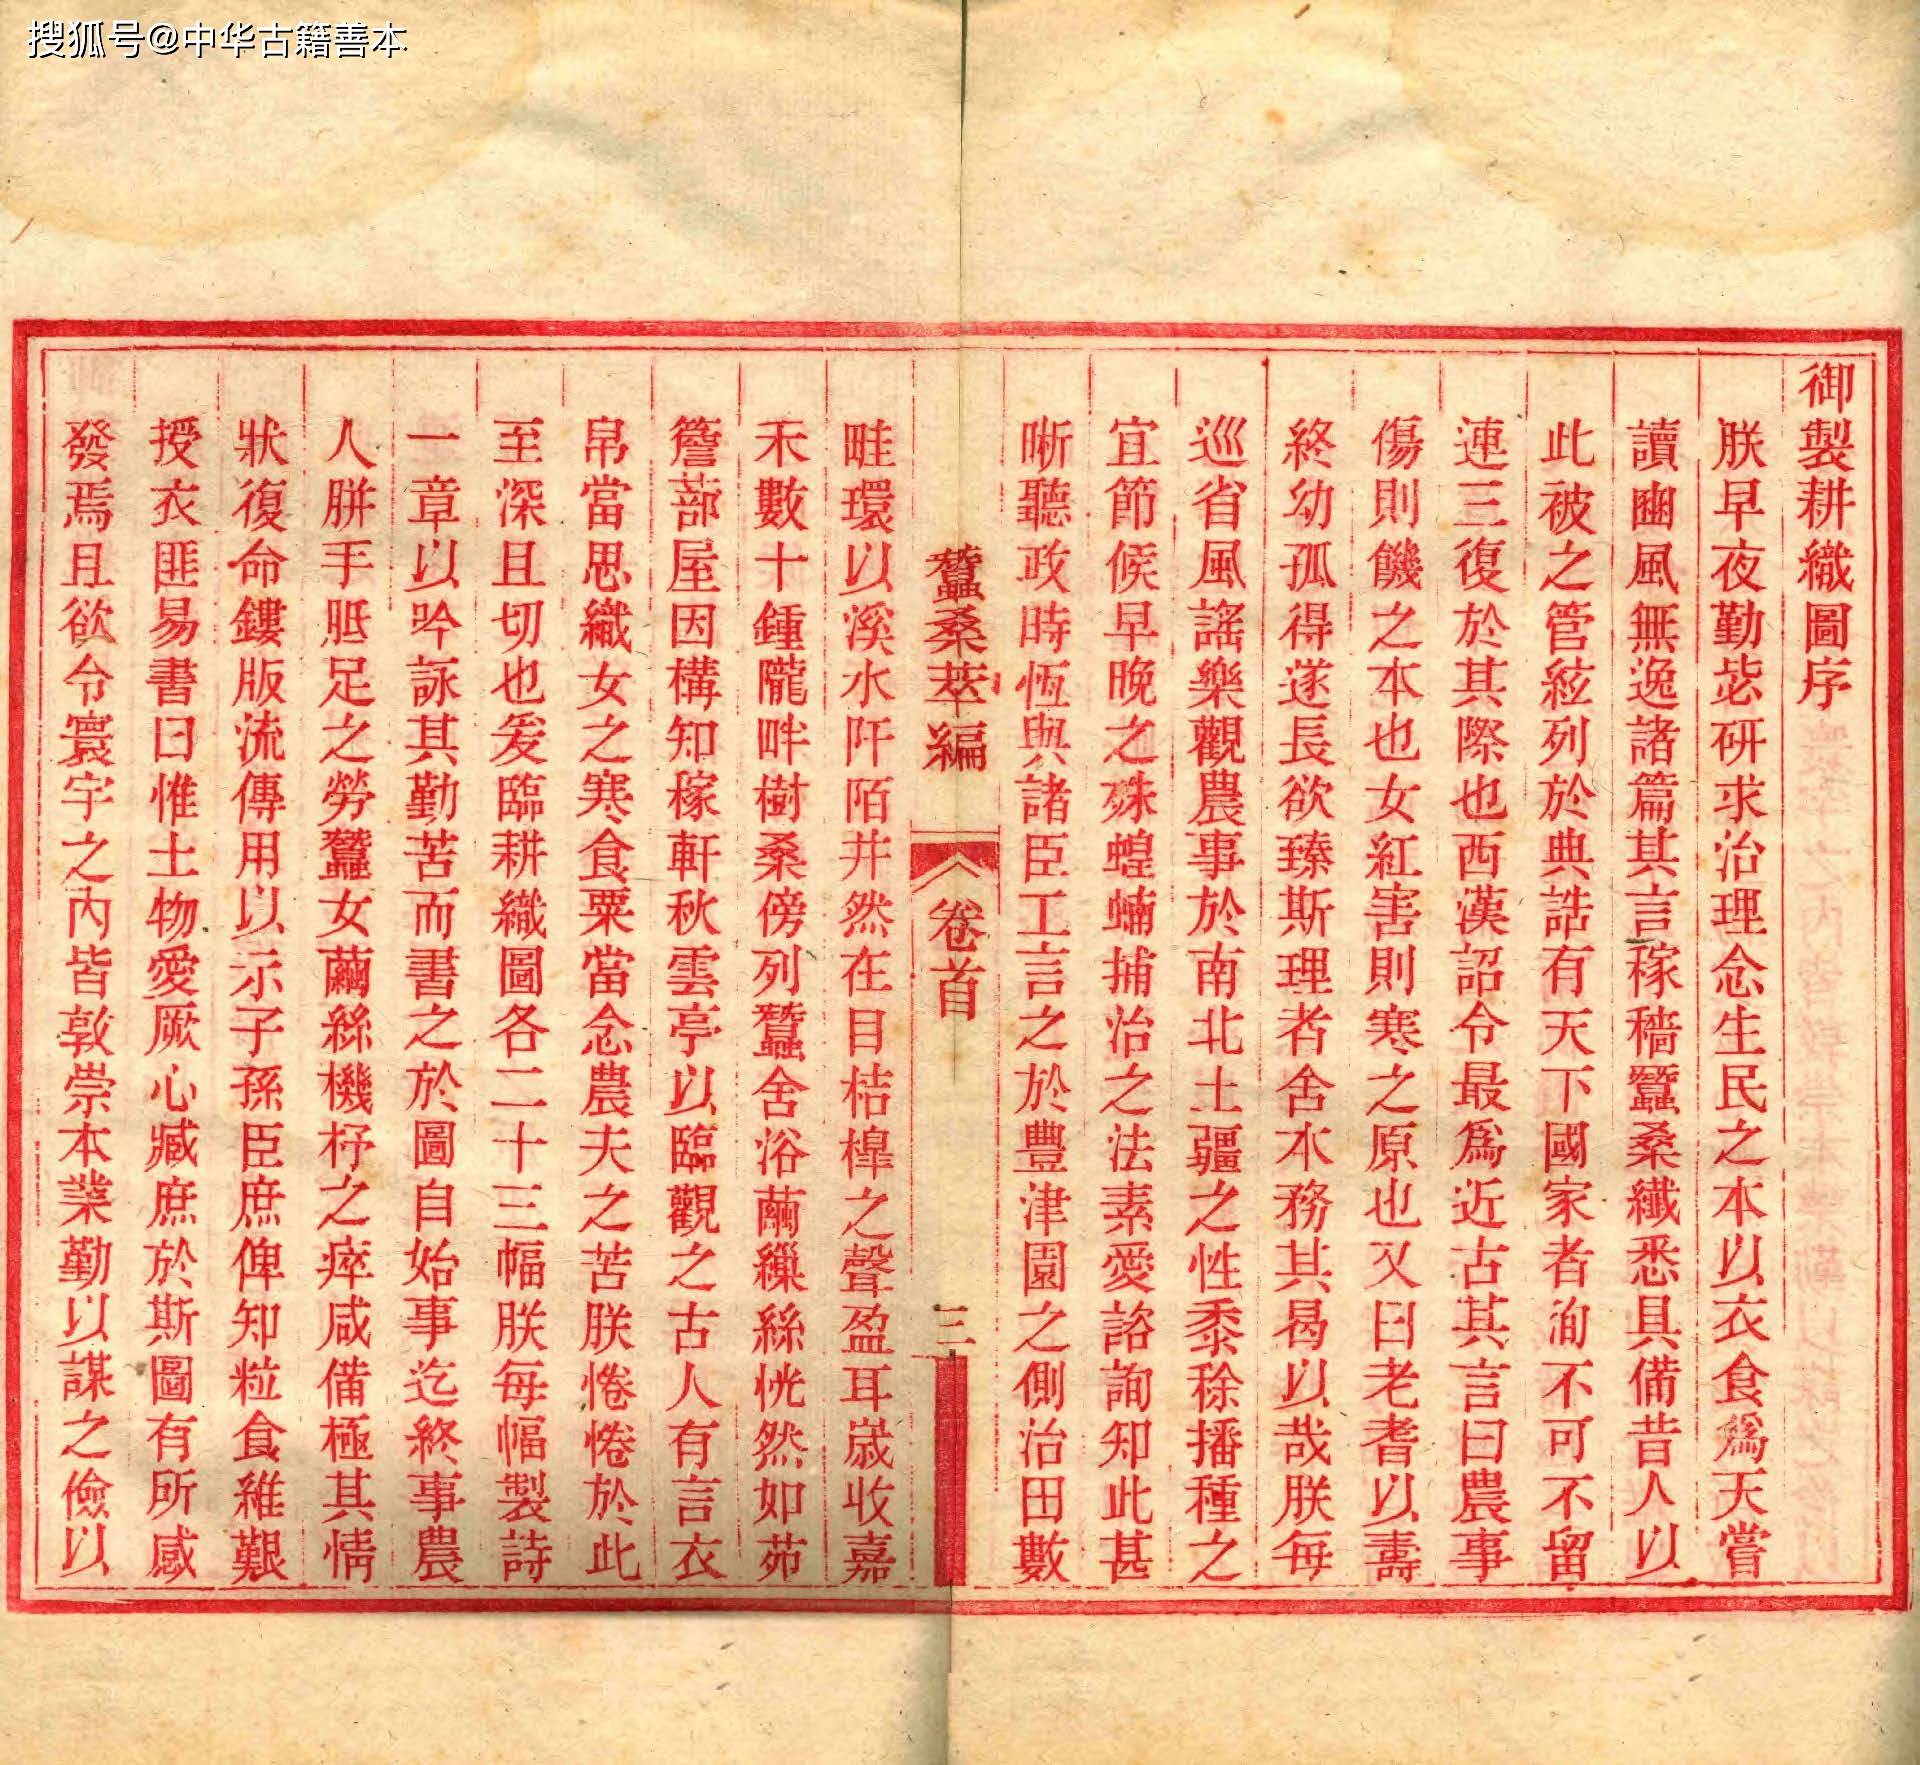 搜狐号@中华古籍善本
御製耕織圖序
朕早夜勤毖研求治理念生民之本以衣食爲天嘗
讀豳風無逸諸篇其言稼穡蠶桑纖悉具備昔人以
此被之管絃列於典誥有天下國家者洵不可不留
連三復於其際也西漢詔令最爲近古其言曰農事
傷則饑之本也女紅害則寒之原也又曰老耆以壽
終幼孤得遂長欲臻斯理者舍本務其曷以哉朕每
巡省風謠樂觀農事於南北土疆之性黍稌播種之
宜節候早晚之殊蝗蝻捕治之法素愛諮詢知此甚
晰聽政時恆與諸臣工言之於豐津園之側治田數
蠶桑萃編
卷首
三
畦環以溪水阡陌井然在目桔槹之聲盈耳嵗收嘉
禾數十鍾隴畔樹桑傍列蠶舍浴繭繅絲恍然如茆
簷蔀屋因構知稼軒秋雲亭以臨觀之古人有言衣
帛當思織女之寒食粟當念農夫之苦朕惓惓於此
至深且切也爰臨耕織圖各二十三幅朕每幅製詩
一章以吟詠其勤苦而書之於圖自始事迄終事農
人胼手胝足之勞蠶女繭絲機杼之瘁咸備極其情
狀復命鏤版流傳用以示子孫臣庶俾知粒食維艱
授衣匪易書曰惟土物愛厥心臧庶於斯圖有所感
發焉且欲令寰宇之內皆敦崇本業勤以謀之儉以